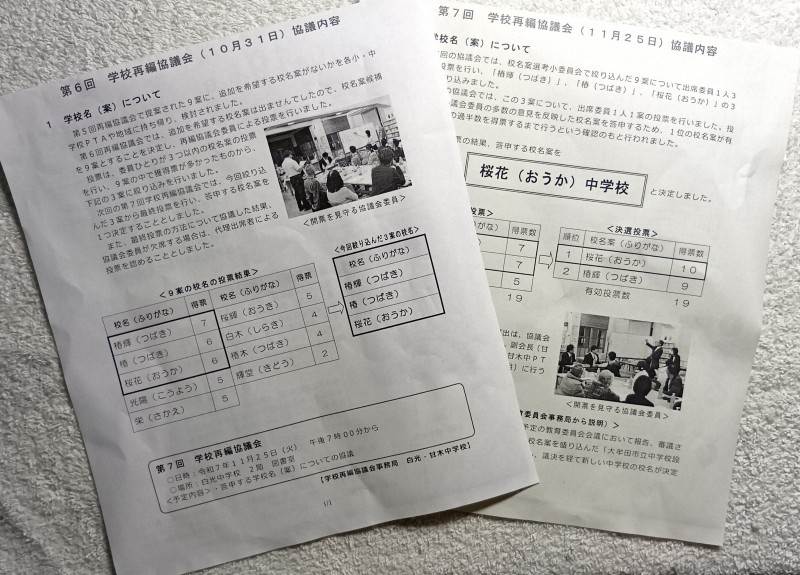 第6回 学校再編協議会(10月31日)協議内容
1 学校名(案)について
第5回再編協議会で提案された9案に、追加を希望する校名案がないかを各小・中
学校PTAや地域に持ち帰り、検討されました。
第6回再編協議会では、追加を希望する校名案は出ませんでしたので、校名案候補
を9案とすることを決定し、再編協議会委員による投票を行いました。
投票は、委員ひとりが3つ以内の校名案の投票
を行い、9案の中で獲得票が多かったものから、
下記の3案に絞り込みを行いました。
次回の第7回学校再編協議会では、今回絞り込
んだ3案から最終投票を行い、答申する校名案を
1つ決定することとしました。
また、最終投票の方法について協議した結果、
協議会委員が欠席する場合は、代理出席者による
投票を認めることとしました。
<開票を見守る協議会委員>
<9案の校名の投票結果>
校名(ふりがな) 得票 校名(ふりがな) 得票
椿輝(つばき) 7 桜輝(おうき) 5
椿(つばき) 6 白木(しらき) 4
桜花(おうか) 6 椿木(つばき) 4
光陽(こうよう) 5 輝堂(きどう) 2
栄(さかえ) 5
<今回絞り込んだ3案の校名>
校名(ふりがな)
椿輝(つばき)
椿(つばき)
桜花(おうか)
第7回 学校再編協議会
○日時:令和7年11月25日(火) 午後7時00分から
○場所:白光中学校 2階 図書室
<予定内容>・答申する学校名(案)についての協議
【学校再編協議会事務局 白光・甘木中学校】
1/1
第7回 学校再編協議会(11月25日)協議内容
学校名(案)について
回の協議会では、校名案選考小委員会で絞り込んだ9案について出席委員1人3
投票を行い、「椿輝(つばき)」、「椿(つばき)」、「桜花(おうか)」の3
り込みました。
協議会では、この3案について、出席委員1人1案の投票を行いました。投
議会委員の多数の意見を反映した校名案を答申するため、1位の校名案が有
の過半数を得票するまで行うという確認のもと行われました。
票の結果、答申する校名案を
桜花(おうか)中学校
と決定しました。
投票>
得票数
7
7
5
19
<決選投票>
順位 校名案(ふりがな) 得票数
1 桜花(おうか) 10
2 椿輝(つばき) 9
有効投票数 19
出は、協議会
副会長(甘
甘木中PT
に行う
<開票を見守る協議会委員>
委員会事務局から説明)>
予定の教育委員会会議において報告、審議さ
校名案を盛り込んだ「大牟田市立中学校設
、議決を経て新しい中学校の校名が決定